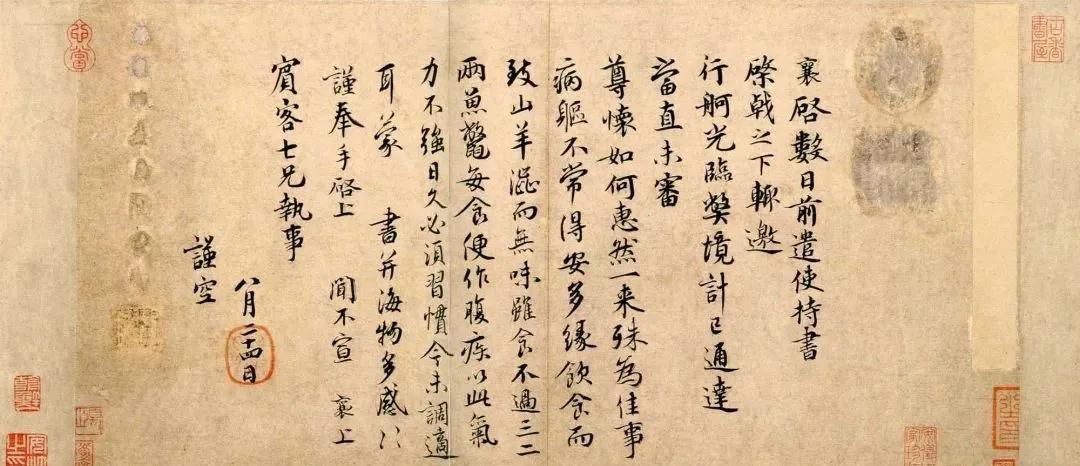 古香書屋
襄啓數日前遣使持書
棨戟之下輙邀
行舸光臨獘境計已通達
當直未審
尊懷如何惠然一来殊為佳事
病軀不常得安多緣飲食而
致山羊澁而無味雖食不過三二
兩魚鼈每食便作腹疾以此氣
力不強日久必須習慣今未調適
耳蒙 書并海物多感〻
謹奉手啓上 聞不宣 襄上
賓客七兄執事
八月二十四日
謹空